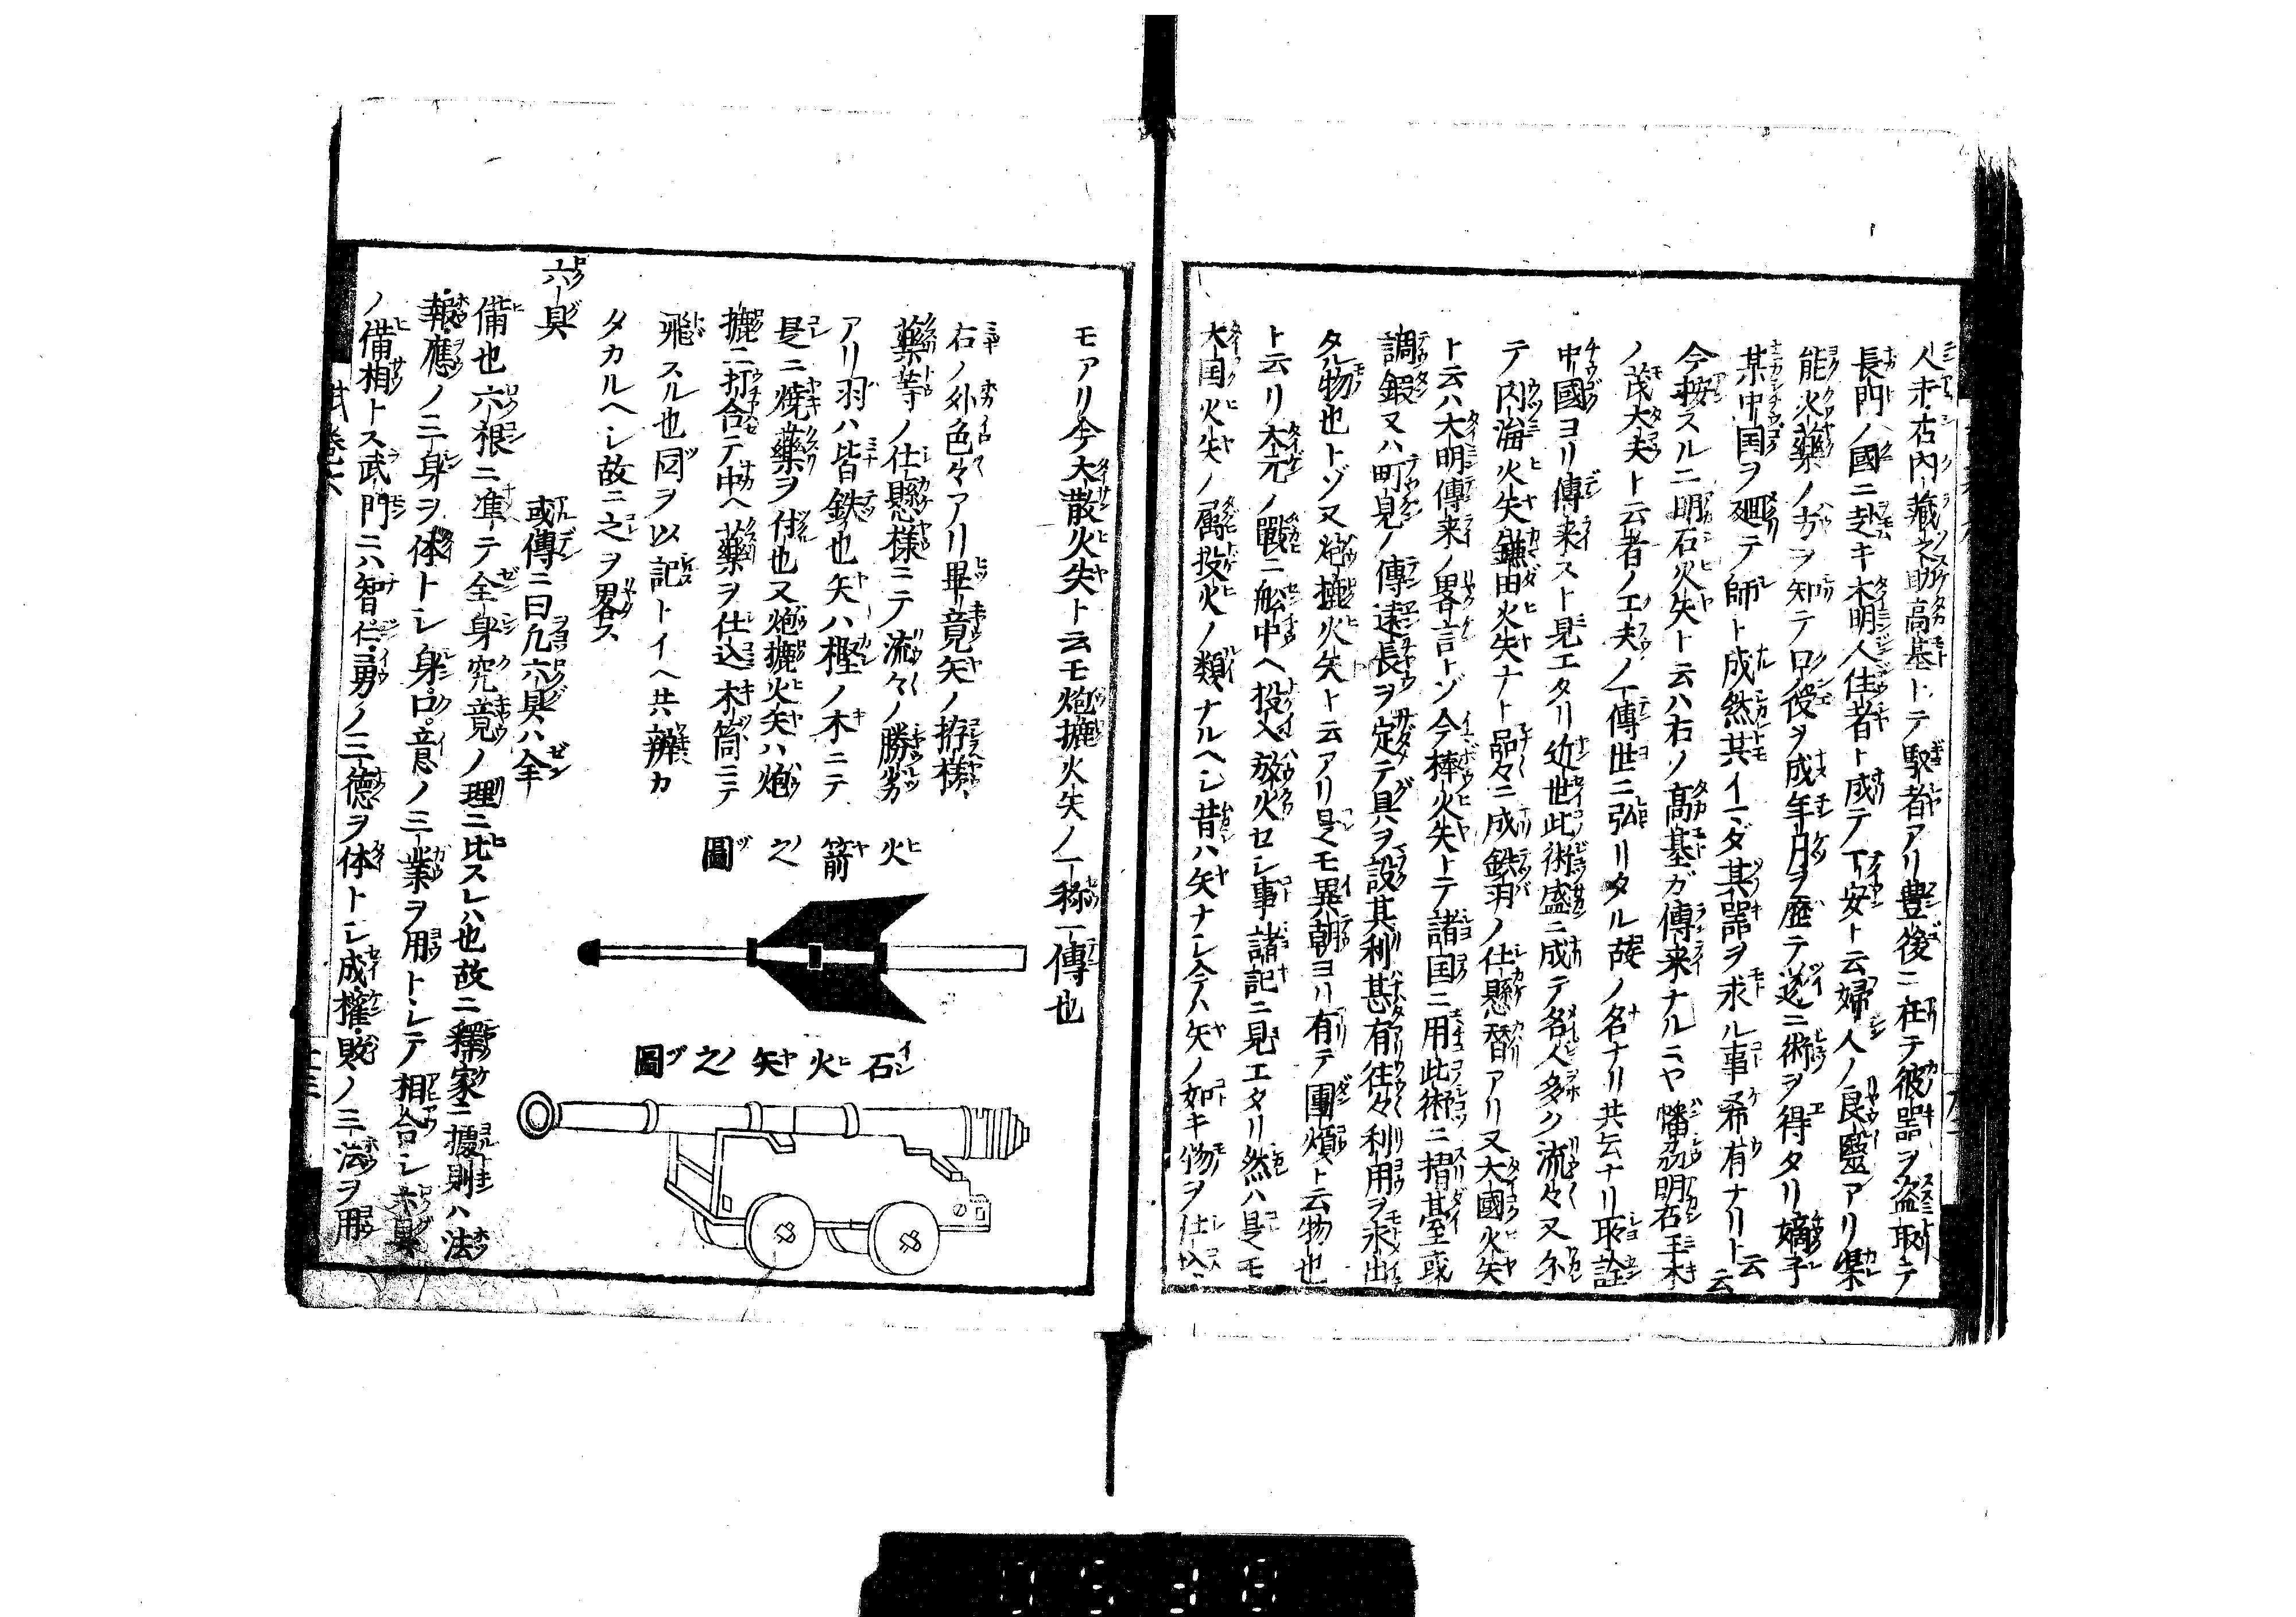 人未右内藏之助高基トテ馭者アリ豊後ニ在テ彼器ヲ盗取テ
長門ノ國ニ赴キ大明人住者ト成テ下安ト云婦人ノ良醫アリ渠
能火藥ノ方ヲ知テ口ノ役ヲ成年月ヲ歴テ遂ニ術ヲ得タリ嫡子
某中国ヲ廻テ師ト成然共イマダ其器ヲ求ル事希有ナリト云云
今按スルニ明石火矢ト云ハ右ノ高基ガ傳来ナルニヤ播刕明石手木
ノ茂大夫ト云者ノ工夫ノ一傳世ニ弘リタル故ノ名ナリ共云ナリ取詮
中國ヨリ傳来スト見エタリ近世此術盛ニ成テ名人多ク流々又尓
テ内海火矢鎌田火矢ナト品々ニ成鉄羽ノ仕懸替アリ又大國火矢
ト云ハ大明傳来ノ畧言トゾ今棒火矢トテ諸国ニ用此術ニ摺臺或
調鍜又ハ町見ノ傳遠長ヲ定テ具ヲ設其利甚有往々利用ヲ求出
タル物也トゾ又炮摝火矢ト云アリ是モ異朝ヨリ有テ團熕ト云物也
ト云リ大元ノ戰ニ舩中ヘ投入放火セシ事諸記ニ見エタリ然ハ是モ
大国火矢ノ属投火ノ類ナルヘシ昔ハ矢ナシ今ハ矢ノ如キ物ヲ仕込
モアリ今大散火矢ト云モ炮摝火矢ノ一称一傳也
右ノ外色々アリ畢竟矢ノ拵様
藥等ノ仕懸様ニテ流々ノ勝劣
アリ羽ハ皆鉄也矢ハ樫ノ木ニテ
是ニ焼藥ヲ付也又炮摝火矢ハ炮
摝ニ打合テ中ヘ藥ヲ仕込木筒ニテ
飛スル也図ヲ以記トイヘ共辨カ
タカルヘシ故ニ之ヲ畧ス
火箭之圖
石火矢之圖
六具
或傳ニ曰凢六具ハ全
備也六根ニ準テ全身究竟ノ理ニ比スレハ也故ニ釋家ニ據則ハ法
報應ノ三身ヲ体トシ身口意ノ三業ヲ用トシテ相合シ六具
ノ備相トス武門ニハ智仁勇ノ三德ヲ体トシ成權敗ノ三法ヲ用